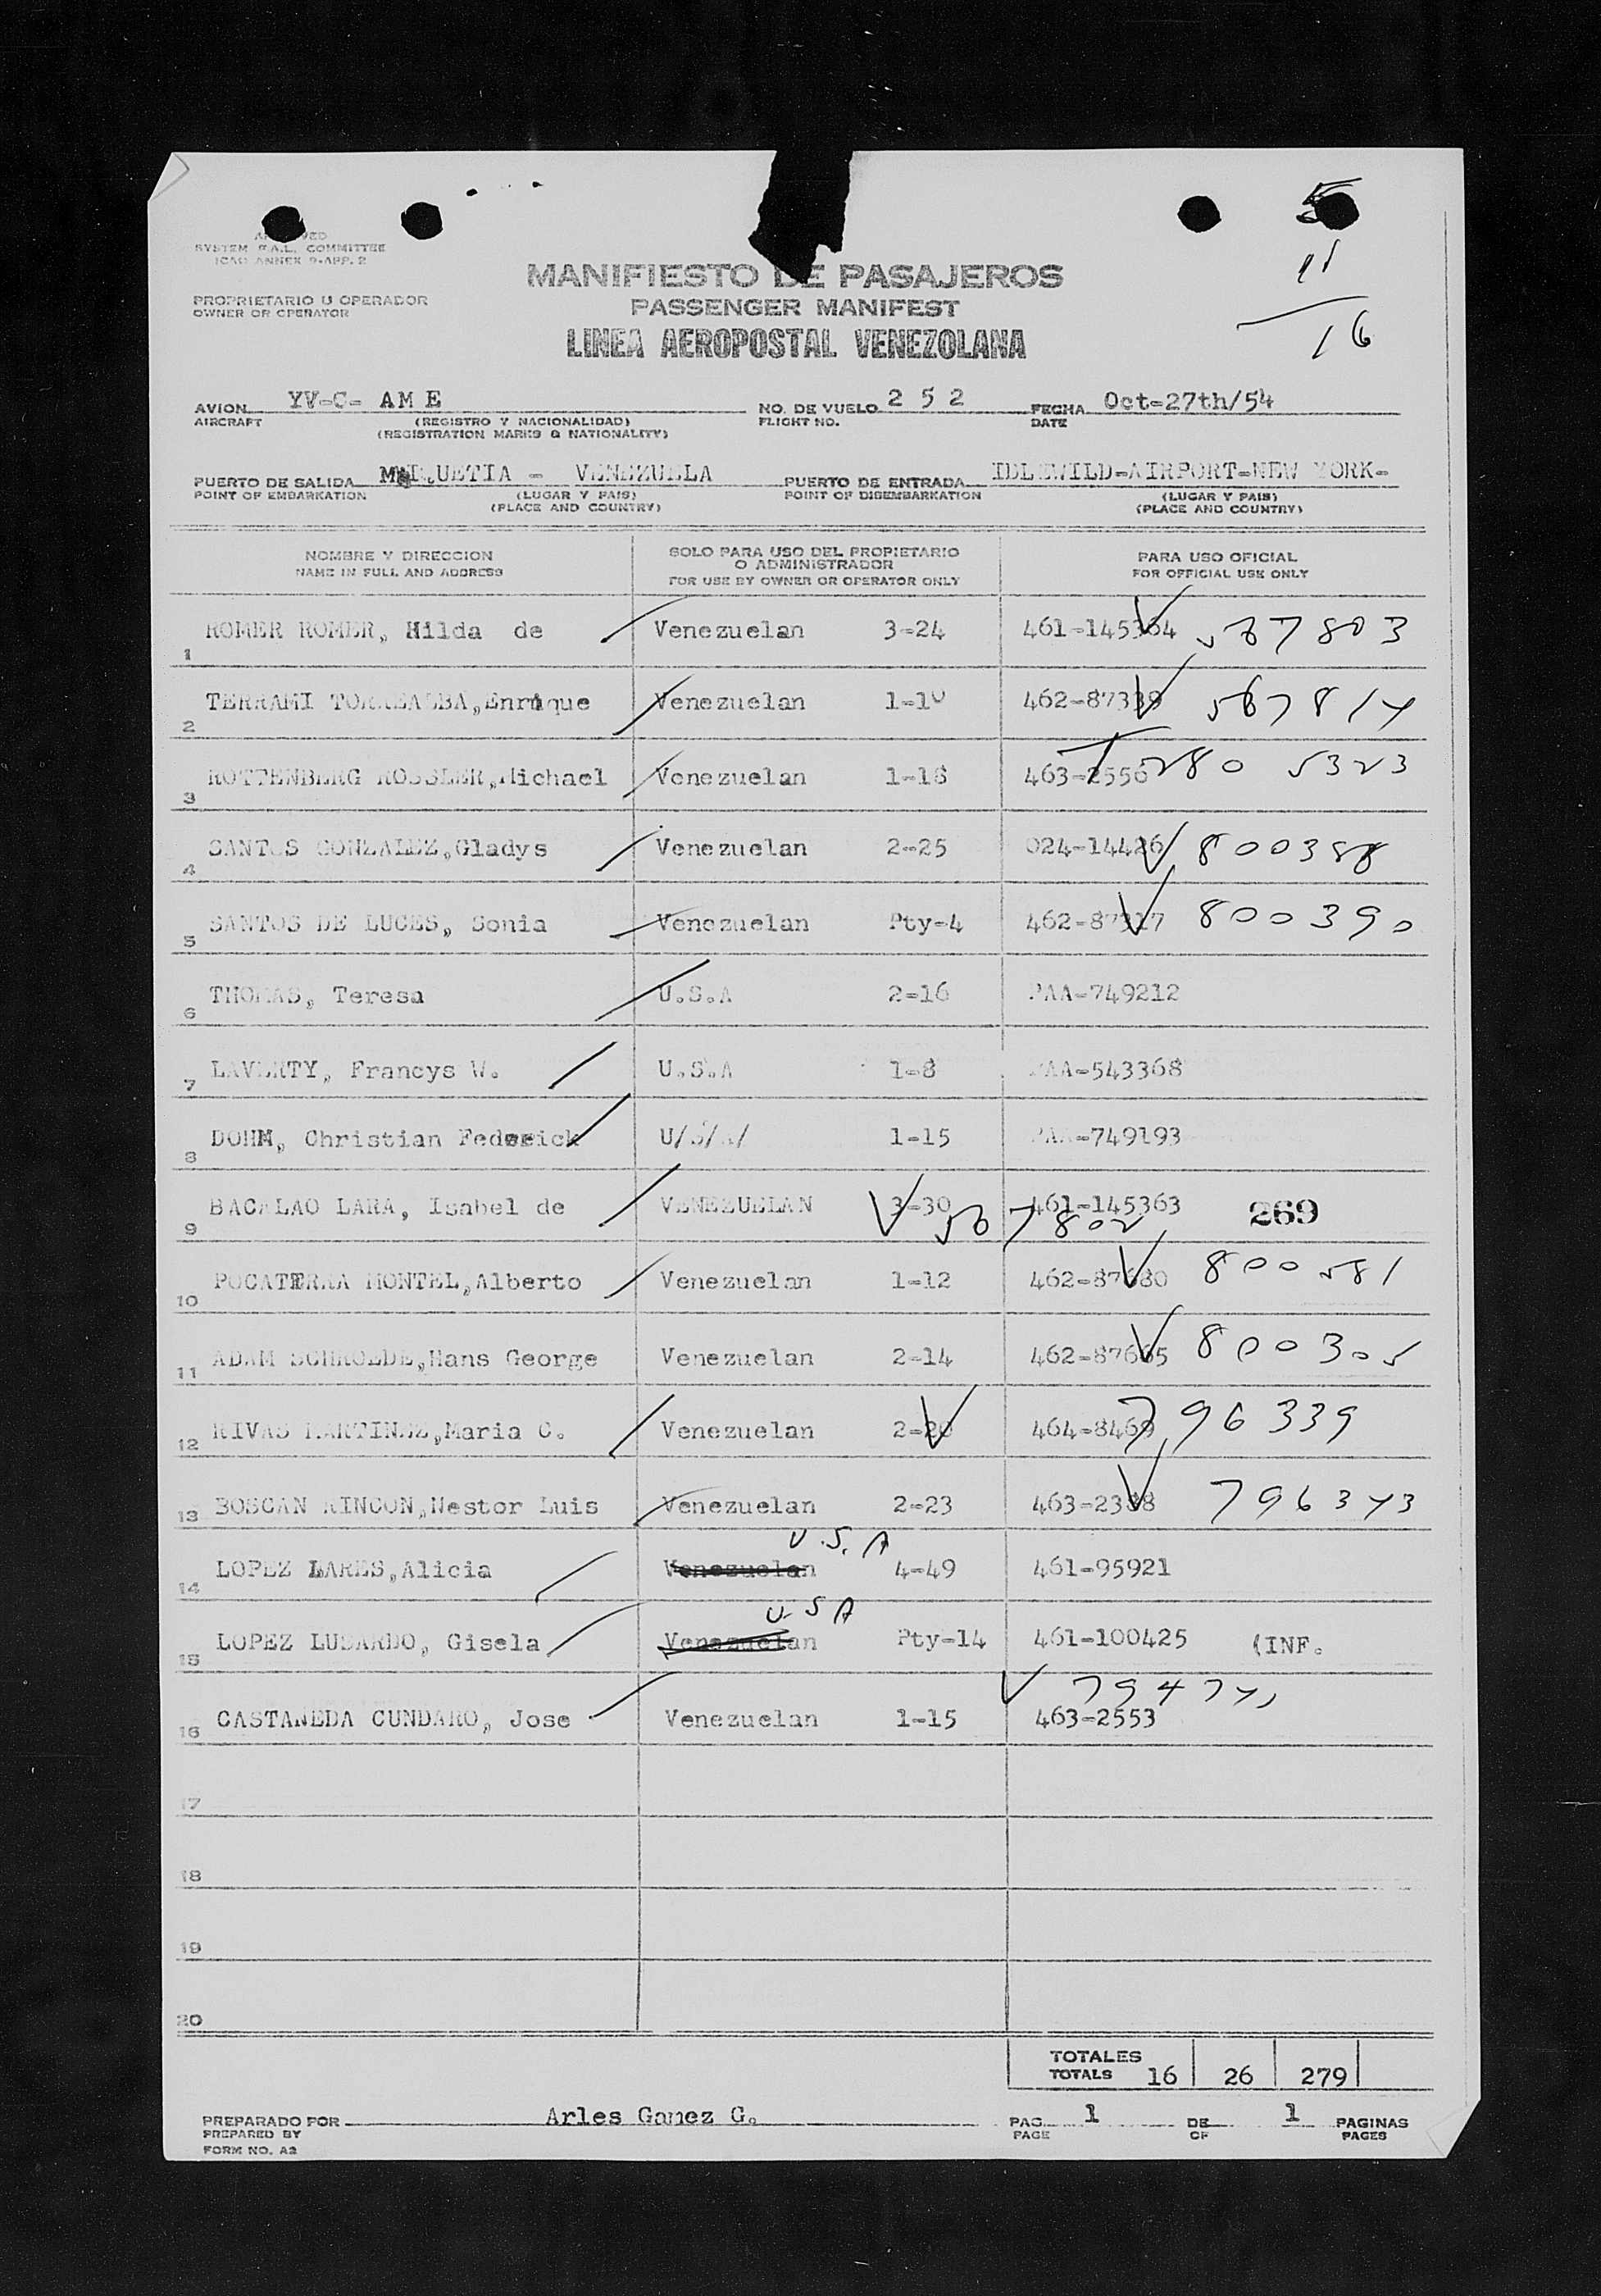 SYSTEM F.A.L. COMMITTEE
ICAO ANNEX 9-APP. 2
PROPRIETARIO U OPERADOR
OWNER OR OPERATOR
MANIFIESTO DE PASAJEROS
PASSENGER MANIFEST
LINEA AEROPOSTAL VENEZOLANA
5
11
16
AVION YV-C- AME NO. DE VUELO 2 5 2 FECHA Oct-27th/54
AIRCRAFT (REGISTRO Y NACIONALIDAD) FLIGHT NO. DATE
(REGISTRATION MARKS & NATIONALITY)
PUERTO DE SALIDA MAIQUETIA - VENEZUELA PUERTO DE ENTRADA IDLEWILD-AIRPORT-NEW YORK-
POINT OF EMBARKATION (LUGAR Y PAIS) POINT OF DISEMBARKATION (LUGAR Y PAIS)
(PLACE AND COUNTRY) (PLACE AND COUNTRY)
NOMBRE Y DIRECCION SOLO PARA USO DEL PROPIETARIO O ADMINISTRADOR PARA USO OFICIAL
NAME IN FULL AND ADDRESS FOR USE BY OWNER OR OPERATOR ONLY FOR OFFICIAL USE ONLY
1 ROMER ROMER, Hilda de Venezuelan 3-24 461-145364 567803
2 TERRAMI TORREALBA,Enrique Venezuelan 1-10 462-87339 567814
3 ROTTENBERG ROSSLER,Michael Venezuelan 1-18 463-2556 780 5323
4 SANTOS GONZALEZ,Gladys Venezuelan 2-25 024-14426 800388
5 SANTOS DE LUCES, Sonia Venezuelan Pty-4 462-87317 800390
6 THOMAS, Teresa U.S.A 2-16 PAA-749212
7 LAVERTY, Francys W. U.S.A 1-8 PAA-543368
8 DOHM, Christian Federick U/S/A/ 1-15 PAA-749193
9 BACALAO LARA, Isabel de VENEZUELAN 3-30 461-145363 269
567802
10 POCATERRA MONTEL,Alberto Venezuelan 1-12 462-87680 800581
11 ADAM SCHROEDE,Hans George Venezuelan 2-14 462-87665 800305
12 RIVAS MARTINEZ,Maria C. Venezuelan 2-20 464-8469 796339
13 BOSCAN RINCON,Nestor Luis Venezuelan 2-23 463-2388 796343
U.S.A
14 LOPEZ LARES,Alicia Venezuelan 4-49 461-95921
U.S A
15 LOPEZ LUDARDO, Gisela Venezuelan Pty-14 461-100425 (INF.
16 CASTANEDA CUNDARO, Jose Venezuelan 1-15 463-2553
17
18
19
20
TOTALES
TOTALS 16 26 279
PREPARADO POR Arles Gamez G. PAG. 1 DE 1 PAGINAS
PREPARED BY PAGE OF PAGES
FORM NO. A2